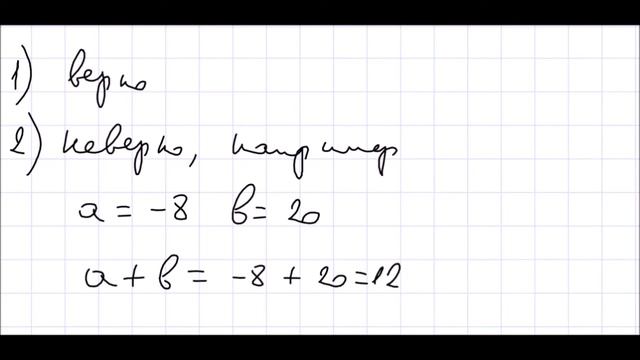 1) верно
2) неверно, например
a = -8 b = 20
a + b = -8 + 20 = 12